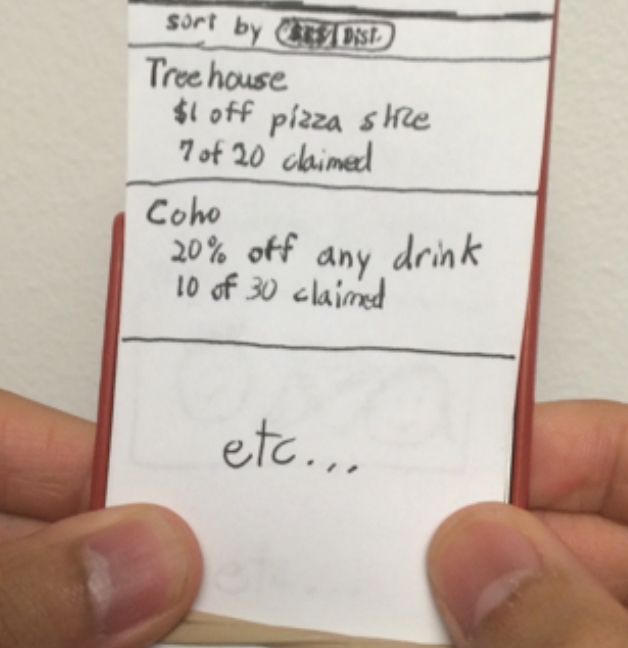 sort by $$$ | Dist.
Treehouse
$1 off pizza slice
7 of 20 claimed
Coho
20% off any drink
10 of 30 claimed
etc...
etc...